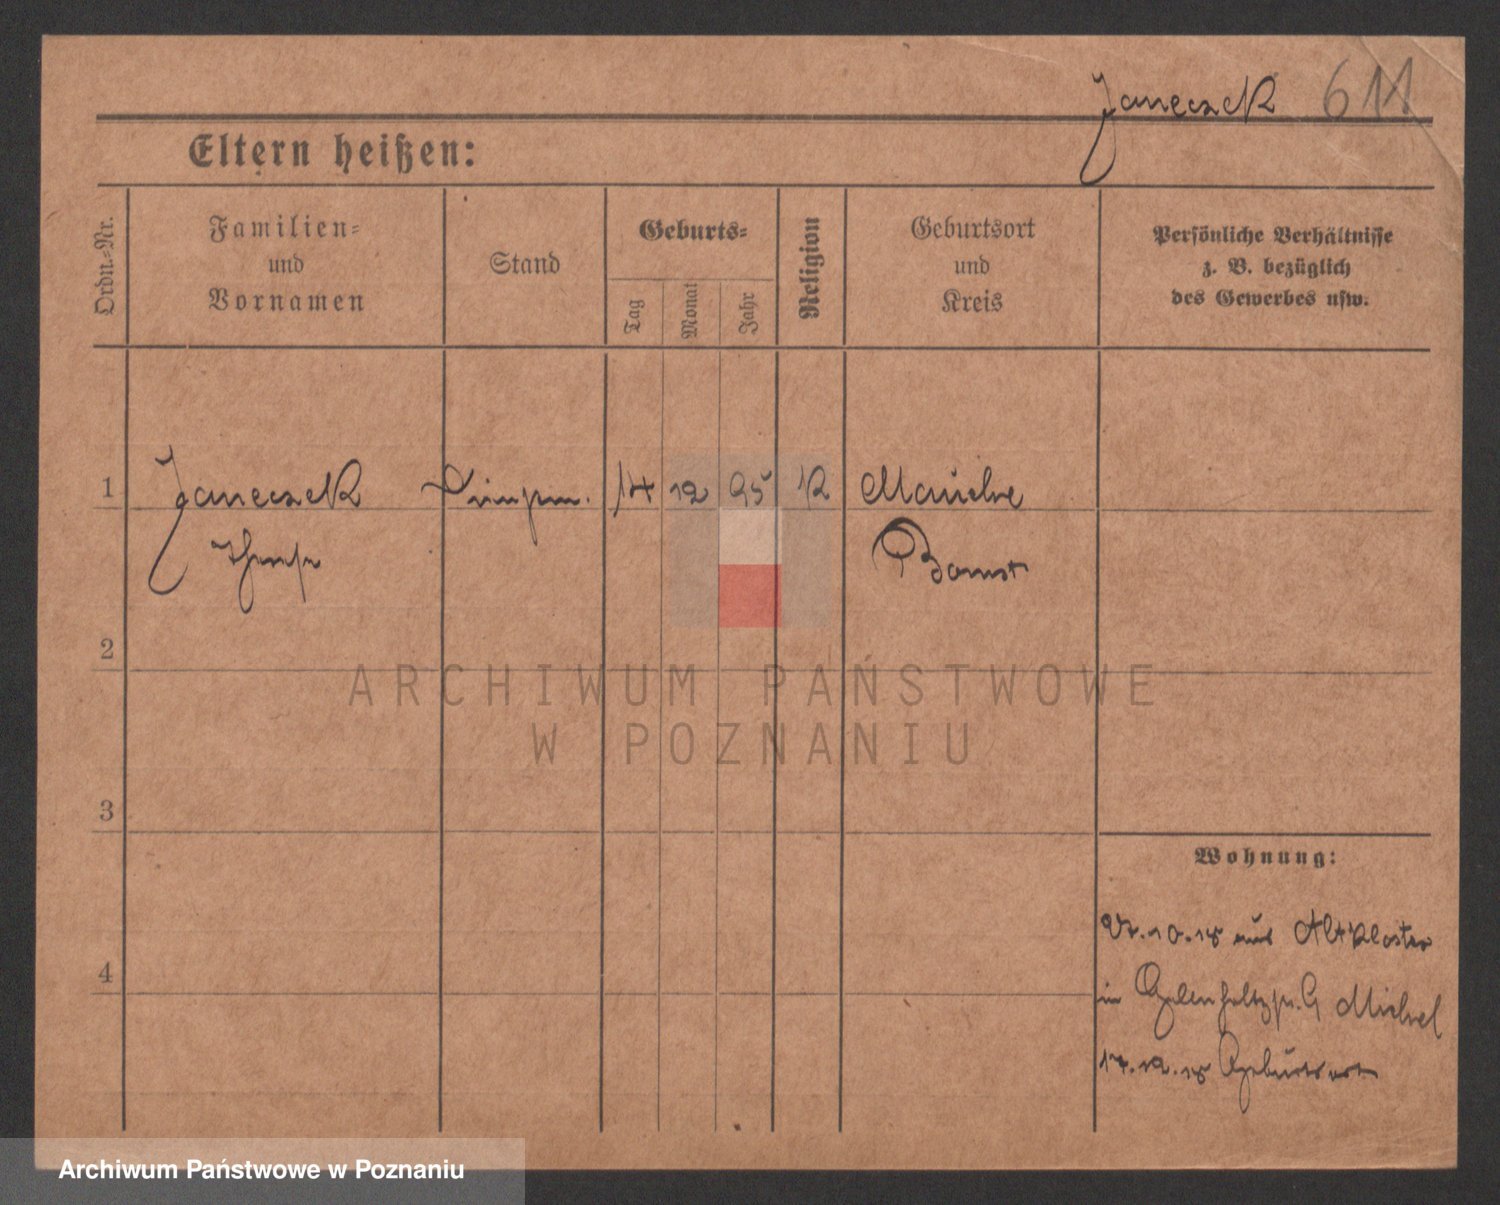 Janeczek 611
Eltern heißen:
Ordn.-Nr.
Familien-
und
Vornamen
Stand
Geburts-
Tag
Monat
Jahr
Religion
Geburtsort
und
Kreis
Persönliche Verhältnisse
z. B. bezüglich
des Gewerbes usw.
1 Janeczek 14 12 95 K Mauche
Bomst
2
ARCHIWUM PAŃSTWOWE
W POZNANIU
3
Wohnung:
10.18 aus Altkloster
4
in Michel
17.12.18 Geburtsort
Archiwum Państwowe w Poznaniu